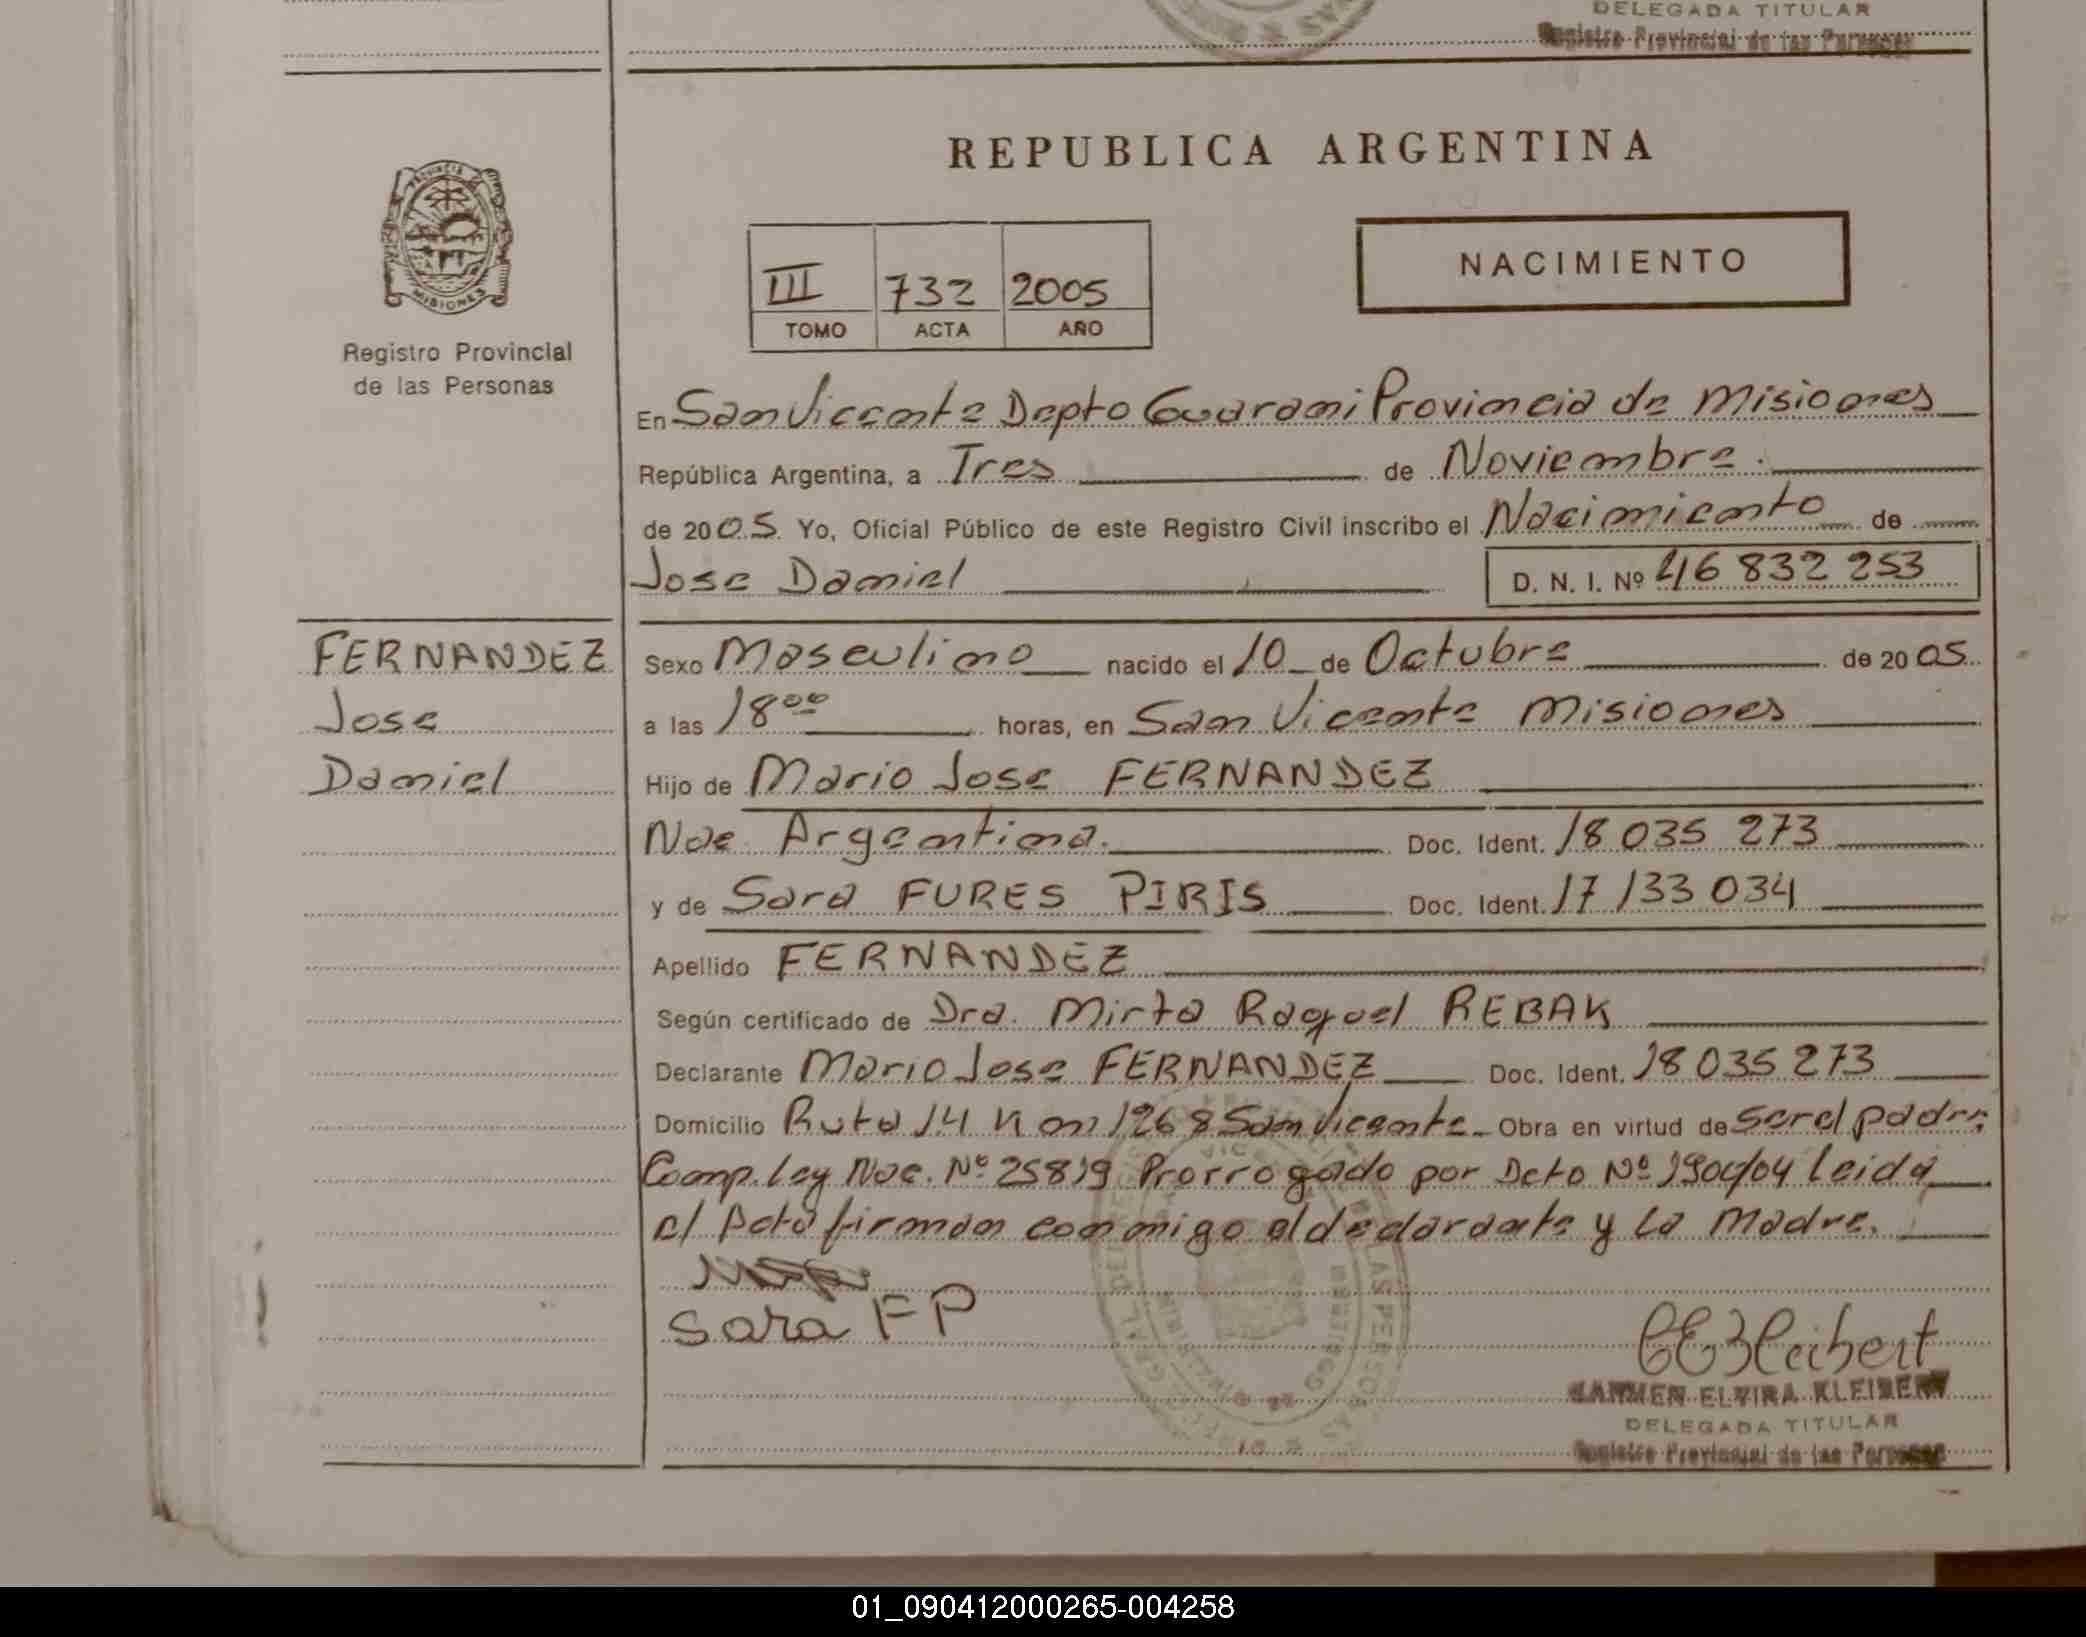 DELEGADA TITULAR
Registro Provincial de las Personas
REPUBLICA ARGENTINA
MISIONES
Registro Provincial
de las Personas
III 732 2005
TOMO ACTA AÑO
NACIMIENTO
En San Vicente Depto Guarani Provincia de Misiones
República Argentina, a Tres de Noviembre.
de 2005. Yo, Oficial Público de este Registro Civil inscribo el Nacimiento de
Jose Daniel D. N. I. Nº 46 832 253
FERNANDEZ
Jose
Daniel
Sexo Masculino nacido el 10 de Octubre de 2005
a las 18⁰⁰ horas, en San Vicente Misiones
Hijo de Mario Jose FERNANDEZ
Nac. Argentina. Doc. Ident. 18 035 273
y de Sara FURES PIRIS Doc. Ident. 17 133 034
Apellido FERNANDEZ
Según certificado de Dra. Mirta Raquel REBAK
Declarante Mario Jose FERNANDEZ Doc. Ident. 18 035 273
Domicilio Ruta 14 Km 1268 San Vicente Obra en virtud de ser el padre;
Comp. Ley Nac. Nº 25819 Prorrogado por Dcto Nº 1904/04 Leida
el Acta firman conmigo el declarante y la Madre.
Sara F P
CEKleibert
CARMEN ELVIRA KLEIBERT
DELEGADA TITULAR
Registro Provincial de las Personas
01_090412000265-004258